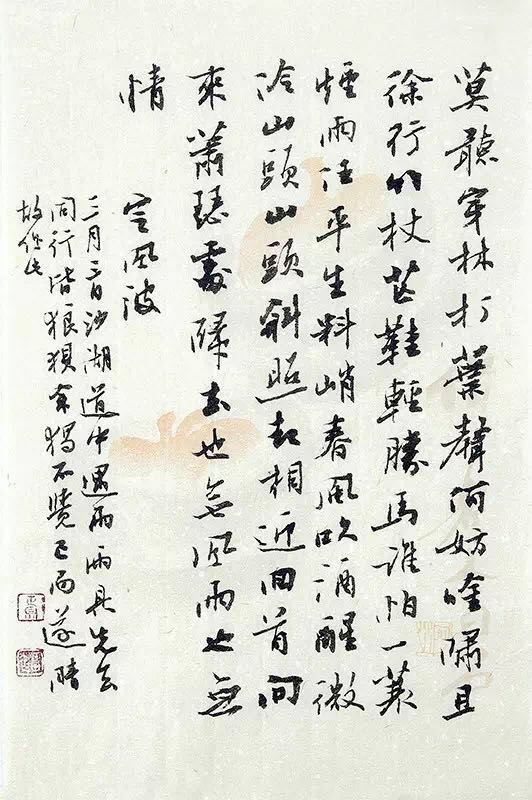 莫聽穿林打葉聲何妨吟嘯且
徐行竹杖芒鞋輕勝馬誰怕一蓑
煙雨任平生料峭春風吹酒醒微
冷山頭山頭斜照却相迎回首向
來蕭瑟處歸去也無風雨也無
情
定風波
三月三日沙湖道中遇雨雨具先去
同行皆狼狽余獨不覺已而遂晴
故作此